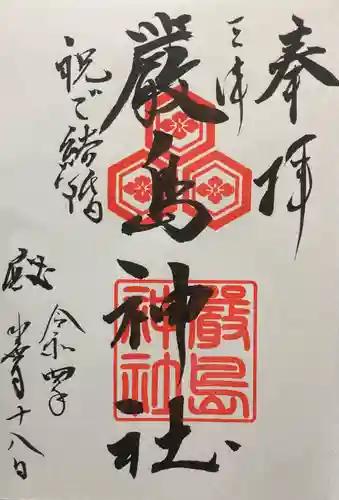 奉拝
三津
厳島神社
嚴島
神社
祝ご結婚
令和四年
十八日
殿